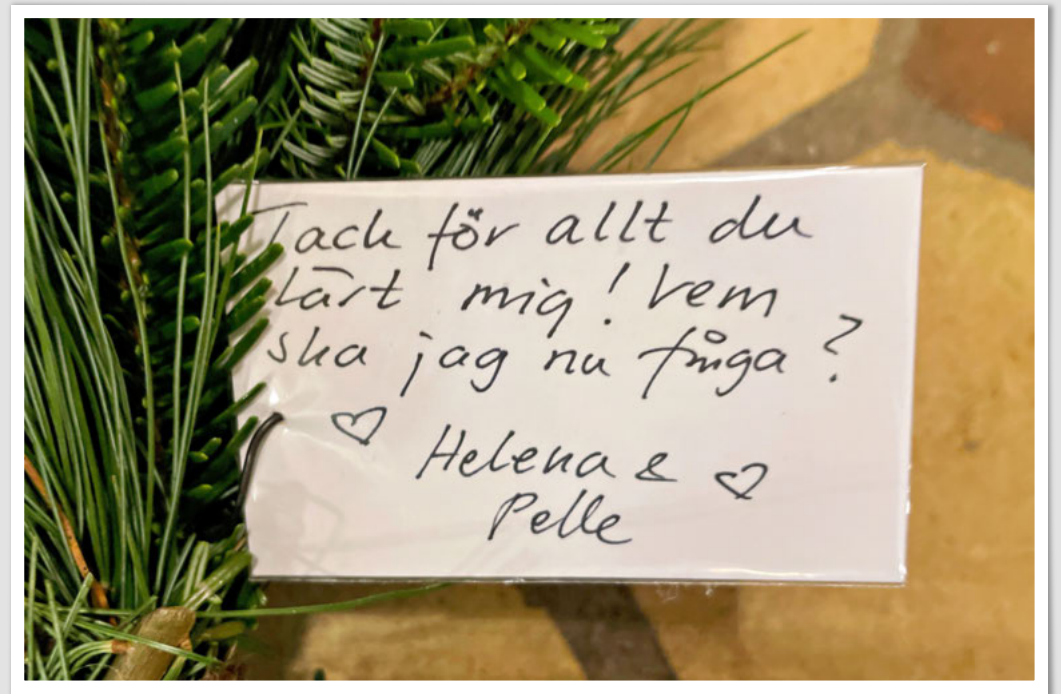 Tack för allt du
lärt mig! Vem
ska jag nu fråga?
♡ Helena & ♡
Pelle